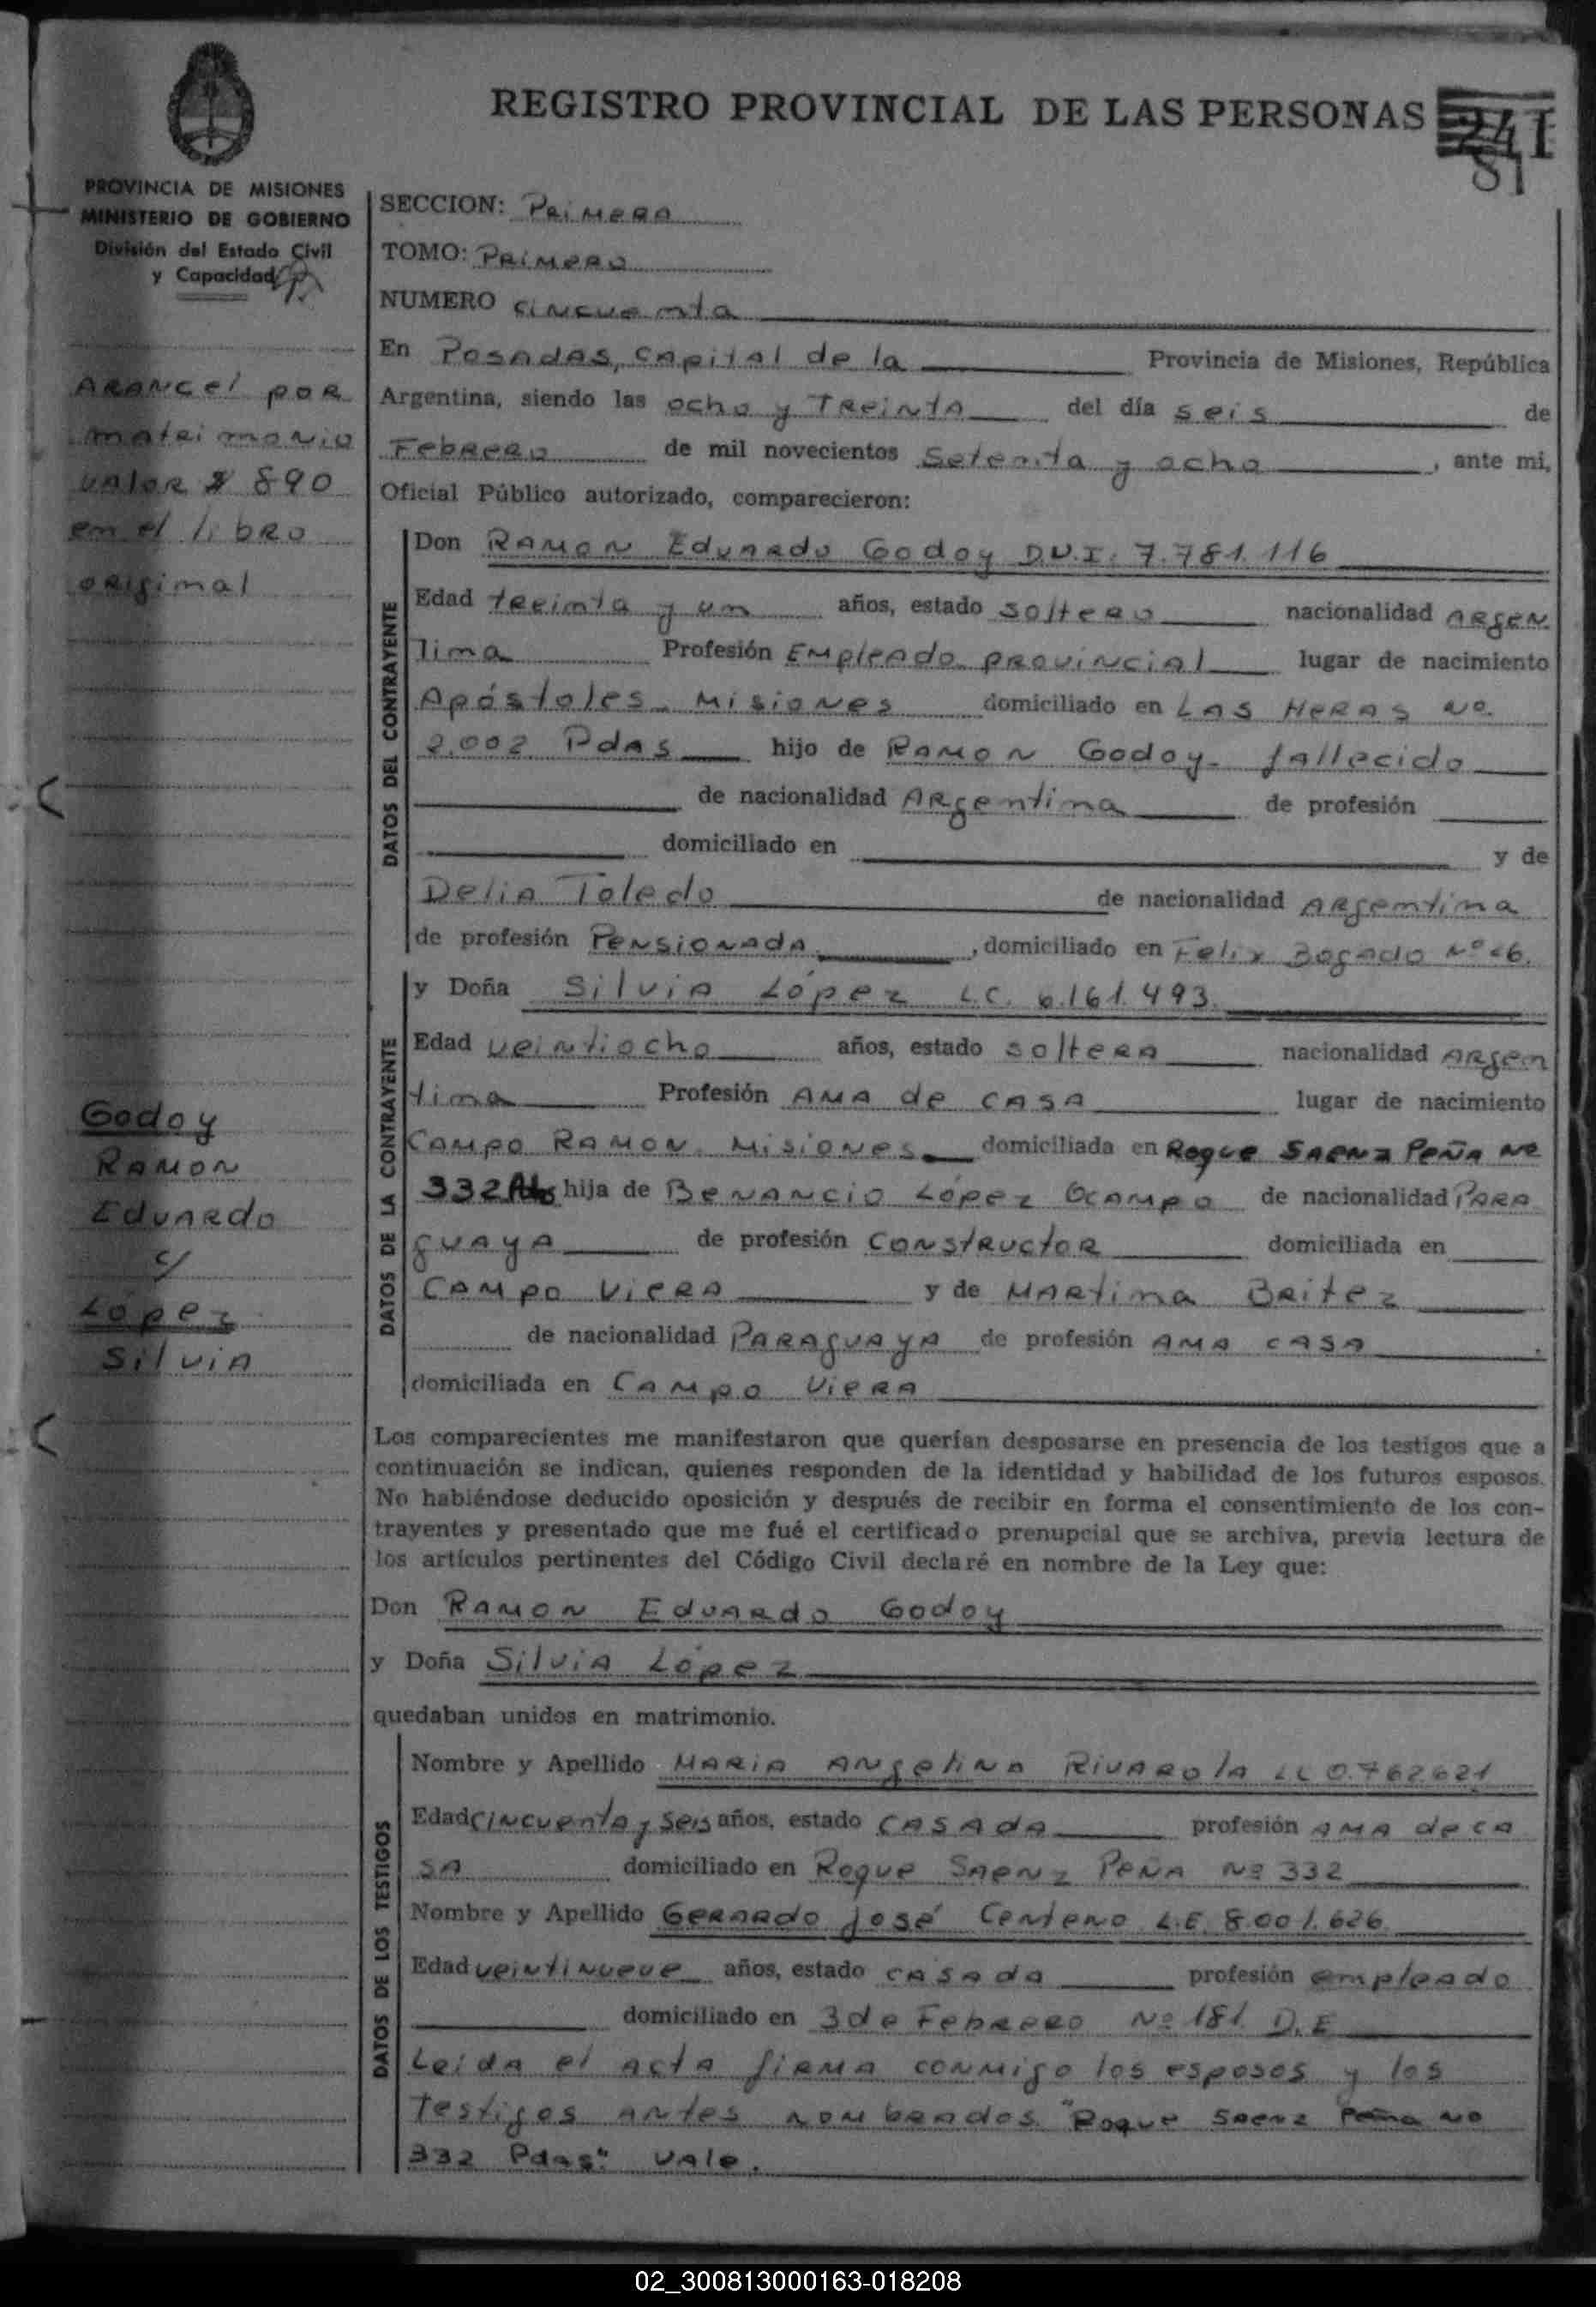 REGISTRO PROVINCIAL DE LAS PERSONAS
241
81
PROVINCIA DE MISIONES
MINISTERIO DE GOBIERNO
División del Estado Civil
y Capacidad
Arancel por
matrimonio
valor $ 890
en el libro
original
Godoy
Ramon
Eduardo
c/
López
Silvia
SECCION: Primera
TOMO: Primero
NUMERO cincuenta
En Posadas, capital de la Provincia de Misiones, República
Argentina, siendo las ocho y treinta del día seis de
Febrero de mil novecientos setenta y ocho, ante mi,
Oficial Público autorizado, comparecieron:
DATOS DEL CONTRAYENTE
Don Ramon Eduardo Godoy D.N.I. 7.781.116
Edad treinta y un años, estado soltero nacionalidad Argen
tina Profesión Empleado provincial lugar de nacimiento
Apóstoles - Misiones domiciliado en Las Heras Nº
2.002 Pdas hijo de Ramon Godoy - fallecido
de nacionalidad Argentina de profesión
domiciliado en y de
Delia Toledo de nacionalidad Argentina
de profesión Pensionada, domiciliado en Felix Bogado Nº
DATOS DE LA CONTRAYENTE
y Doña Silvia López L.C. 6.161.493
Edad veintiocho años, estado soltera nacionalidad Argen
tina Profesión Ama de casa lugar de nacimiento
Campo Ramon. Misiones domiciliada en Roque Saenz Peña Nº
332 hija de Benancio López Ocampo de nacionalidad Para
guaya de profesión Constructor domiciliada en
Campo Viera y de Martina Britez
de nacionalidad Paraguaya de profesión Ama casa.
domiciliada en Campo Viera
Los comparecientes me manifestaron que querían desposarse en presencia de los testigos que a
continuación se indican, quienes responden de la identidad y habilidad de los futuros esposos.
No habiéndose deducido oposición y después de recibir en forma el consentimiento de los con-
trayentes y presentado que me fué el certificado prenupcial que se archiva, previa lectura de
los artículos pertinentes del Código Civil declaré en nombre de la Ley que:
Don Ramon Eduardo Godoy
y Doña Silvia López
quedaban unidos en matrimonio.
DATOS DE LOS TESTIGOS
Nombre y Apellido Maria Angelina Rivarola LC 0.762.621
Edad cincuenta y seis años, estado casada profesión ama de ca
sa domiciliado en Roque Saenz Peña Nº 332
Nombre y Apellido Gerardo José Centeno L.E. 8.001.626
Edad veintinueve años, estado casado profesión empleado
domiciliado en 3 de Febrero Nº 181 D.E
Leida el acta firma conmigo los esposos y los
testigos antes nombrados. "Roque Saenz Peña No
332 Pdas" Vale.
02_300813000163-018208